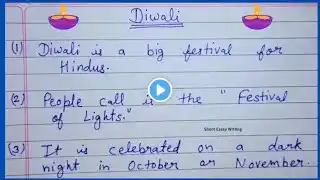 Diwali
(1) Diwali is a big festival for
Hindus.
(2) People call it the "Festival
of Lights."
Short Essay Writing
(3) It is celebrated on a dark
night in October or November.